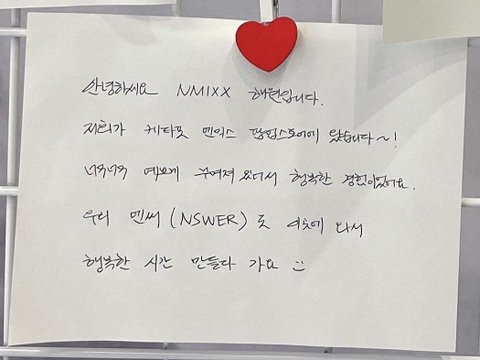 안녕하세요 NMIXX 해원입니다.
저희가 케타포 엔믹스 팝업스토어에 왔습니다~!
너무너무 예쁘게 꾸며져 있어서 행복한 경험이었어요.
우리 엔써(NSWER)도 이곳에 와서
행복한 시간 만들다 가요 :)